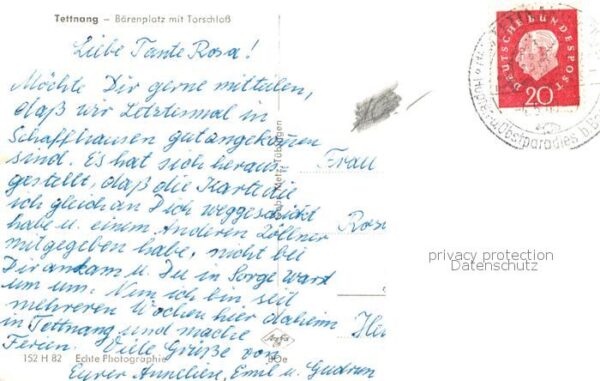 Tettnang – Bärenplatz mit Torschloß
Liebe Tante Rosa!
Möchte Dir gerne mitteilen,
daß wir Letztesmal in
Schaffhausen gut angekommen
sind. Es hat sich heraus-
gestellt, daß die Karte die
ich gleich an Dich weggeschickt
habe u. einem Anderen Zöllner
mitgegeben habe, nicht bei
Dir ankam u. Du in Sorge warst
um uns. Nun ich bin seit
mehreren Wochen hier daheim
in Tettnang und mache
Ferien. Viele Grüße von
Eurer Anneliese, Emil u. Gudrun
152 H 82 Echte Photographie
Metz Tübingen
Agfa
Frau
Rosa
DEUTSCHE BUNDESPOST
20
Obstparadies
privacy protection
Datenschutz